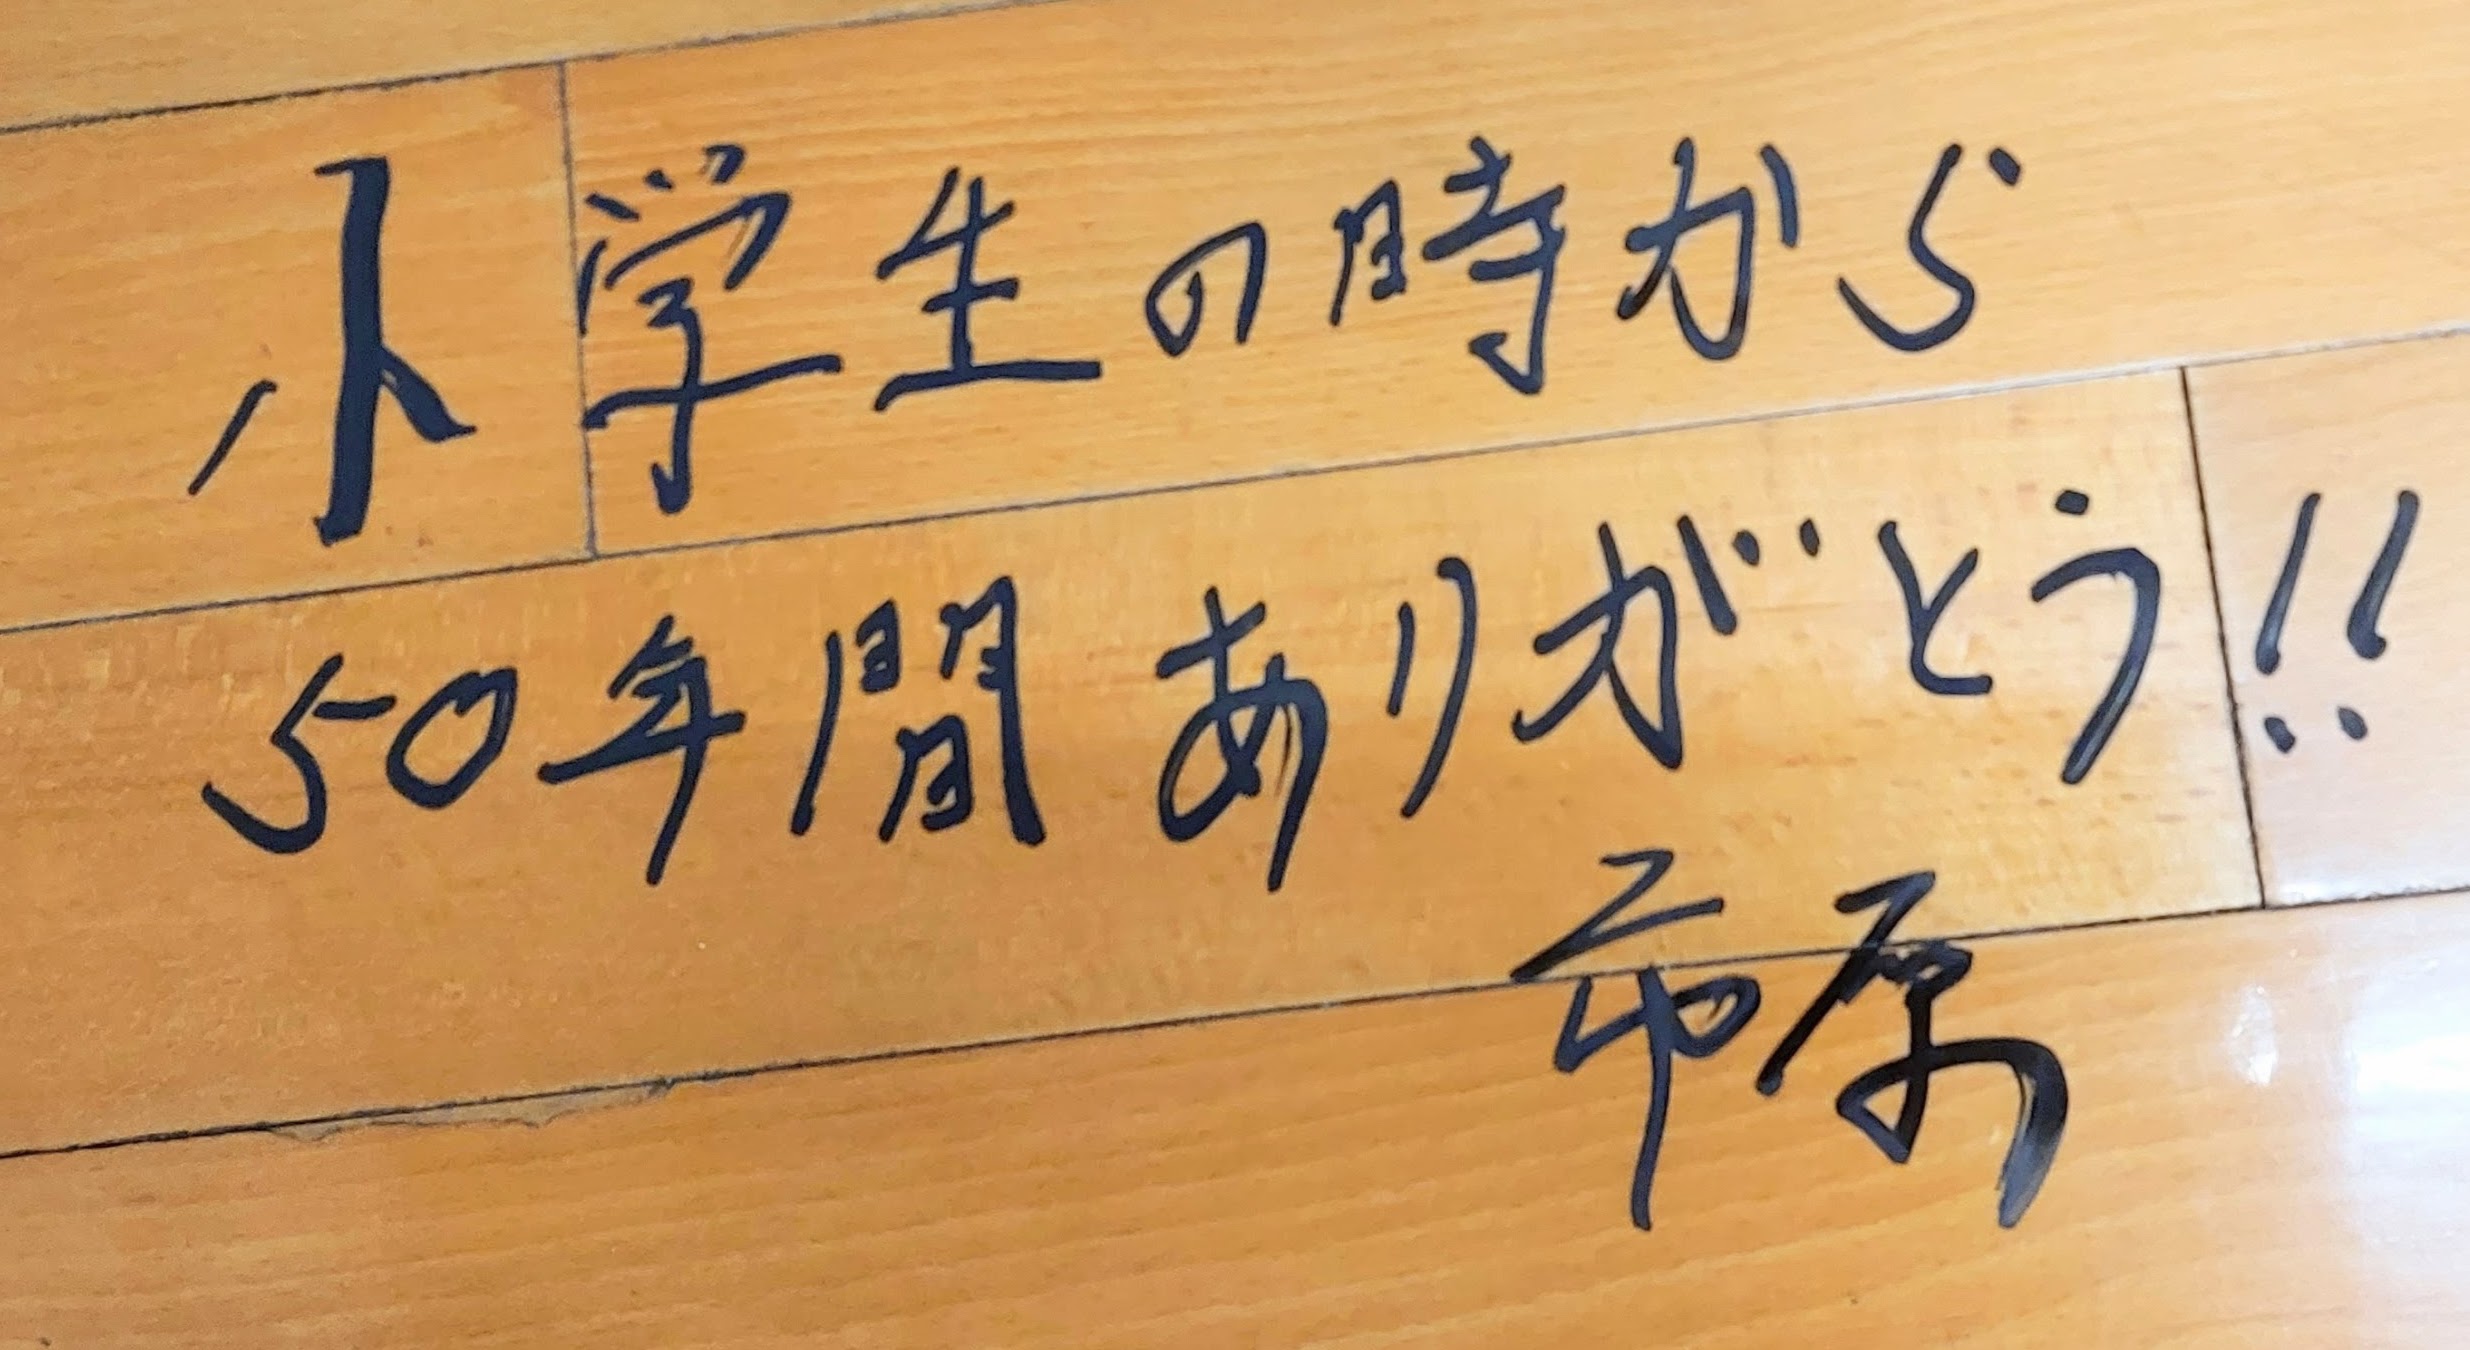 小学生の時から
50年間ありがとう!!
市原